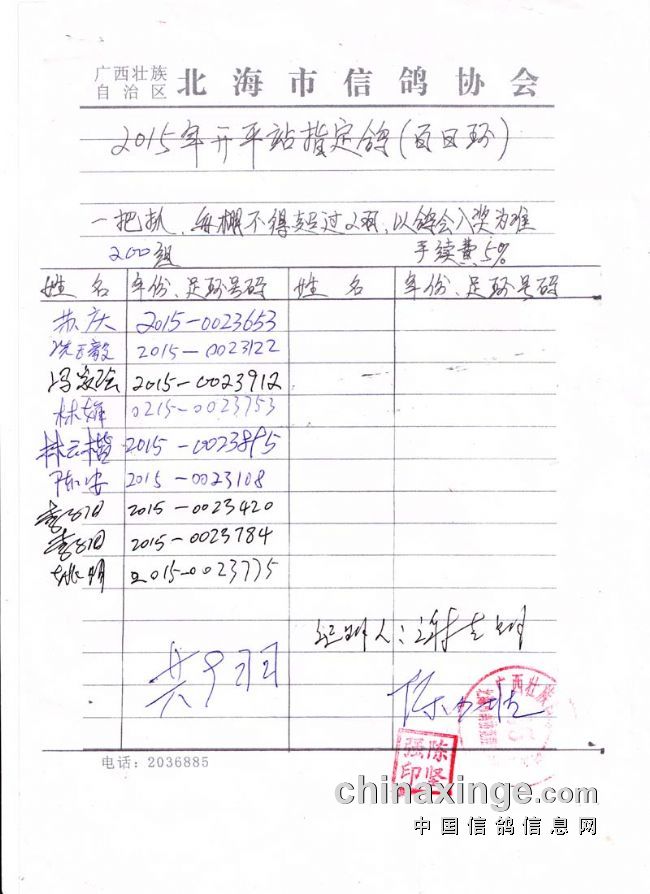 广西壮族
自治区 北海市信鸽协会
2015年开平站指定鸽(百日环)
一把抓,每棚不得超过2羽,以鸽会入奖为准
200组 手续费5%
姓名 年份、足环号码 姓名 年份、足环号码
苏庆 2015-0023653
2015-0023122
冯家强 2015-0023912
林雄 0215-0023753
林云楷 2015-0023895
陈安 2015-0023108
2015-0023420
2015-0023784
姚明 2015-0023775
经办人:
共9羽
广西壮族
陈坚强印
电话:2036885
chinaxinge.com
中国信鸽信息网